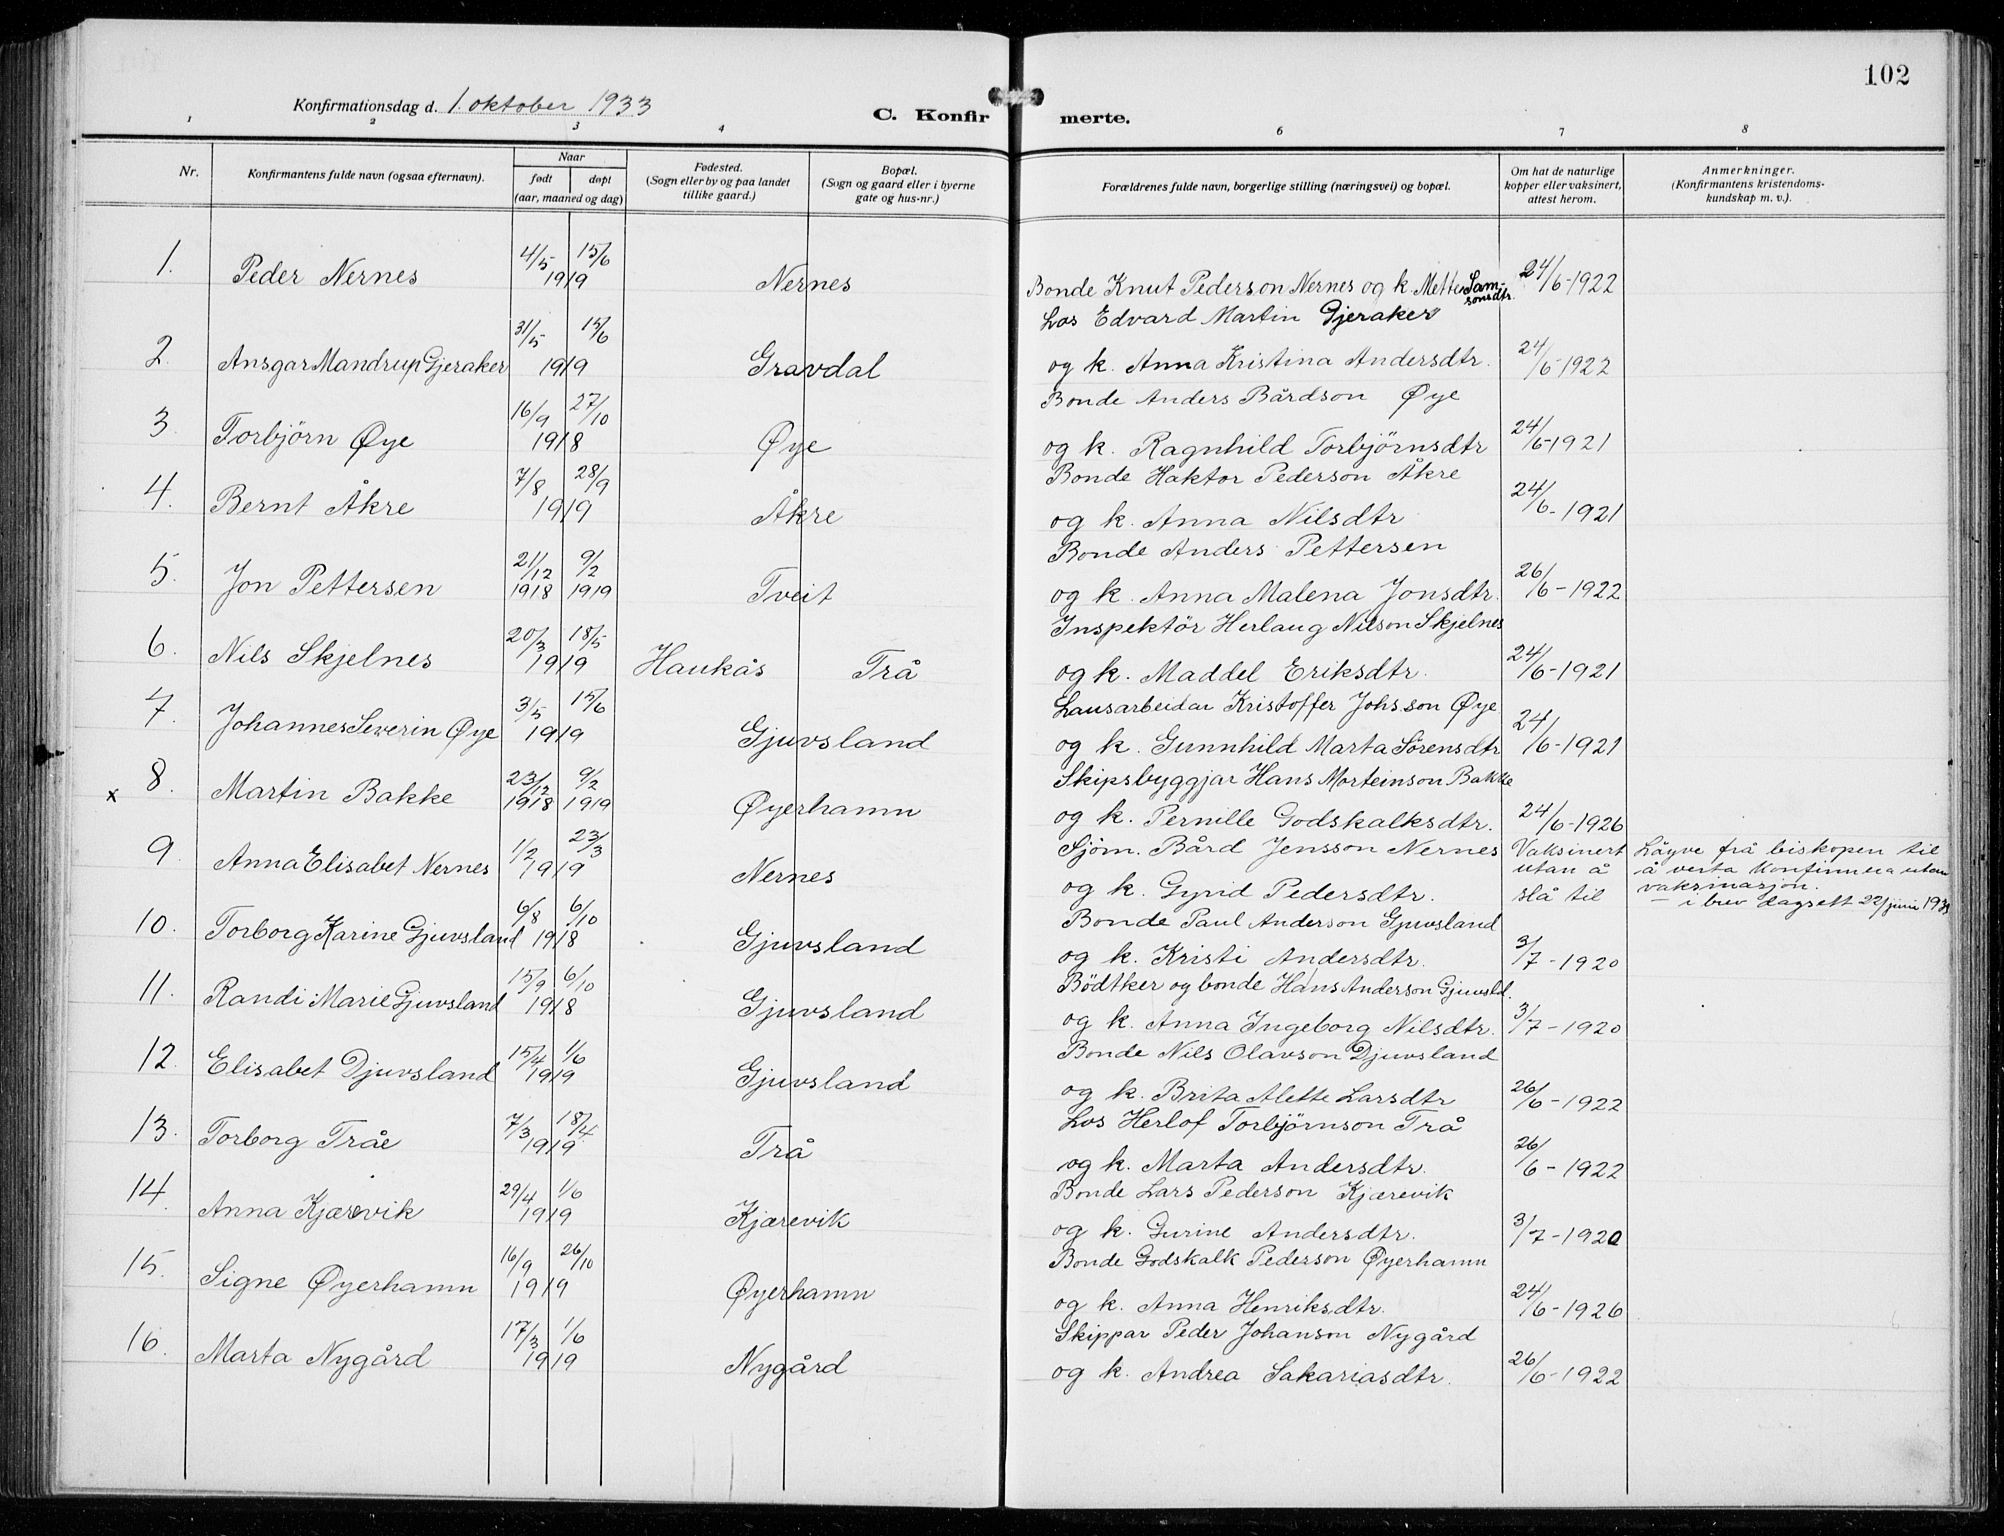 102
Konfirmationsdag d. 1. oktober 1933
C. Konfirmerte.
1 2 3 4 6 7 8
Nr.
Konfirmantens fulde navn (ogsaa efternavn).
Naar
født døpt
(aar, maaned og dag)
Fødested.
(Sogn eller by og paa landet
tillike gaard.)
Bopæl.
(Sogn og gaard eller i byerne
gate og hus-nr.)
Forældrenes fulde navn, borgerlige stilling (næringsvei) og bopæl.
Om hat de naturlige
kopper eller vaksinert,
attest herom.
Anmerkninger.
(Konfirmantens kristendoms-
kundskap m. v.).
1. Peder Nernes 4/5 15/6 1919 Nernes Bonde Knut Pederson Nernes og k. Mette Sam-
sonsdtr. 24/6-1922
Los Edvard Martin Gjeraker
2. Ansgar Mandrup Gjeraker 31/5 15/6 1919 Gravdal og k. Anna Kristina Andersdtr. 24/6-1922
Bonde Anders Bårdson Øye
3. Torbjörn Øye 16/9 27/10 1918 Øye og k. Ragnhild Torbjörnsdtr 24/6-1921
Bonde Haktor Pederson Åkre
4. Bernt Åkre 7/8 28/9 1919 Åkre og k. Anna Nilsdtr 24/6-1921
Bonde Anders Pettersen
5. Jon Pettersen 21/12 1918 9/2 1919 Tveit og k. Anna Malena Jonsdtr. 26/6-1922
Inspektör Herlaug Nilson Skjelnes
6. Nils Skjelnes 20/3 18/5 1919 Haukås Trå og k. Maddel Eriksdtr. 24/6-1921
Lausarbeidar Kristoffer Johsson Øye
7. Johannes Severin Øye 3/5 15/6 1919 Gjuvsland og k. Gunnhild Marta Sörensdtr 24/6-1921
Skipsbyggjar Hans Morteinson Bakke
x 8. Martin Bakke 23/12 1918 9/2 1919 Øyerhamn og k. Pernille Godskalksdtr. 24/6-1926
Sjöm. Bård Jensson Nernes
9. Anna Elisabet Nernes 1/2 23/3 1919 Nernes og k. Gyrid Pedersdtr. Vaksinert
utan å
slå til
Låyve frå biskopen til
å verta konfirmera utan
vaksinasjon.
– i brev dagsett 22/juni 1933
Bonde Paul Anderson Gjuvsland
10. Torborg Karine Gjuvsland 6/8 6/10 1918 Gjuvsland og k. Kristi Andersdtr. 3/7-1920
Bödtker og bonde Hans Anderson Gjuvsld.
11. Randi Marie Gjuvsland 15/9 6/10 1918 Gjuvsland og k. Anna Ingeborg Nilsdtr. 3/7-1920
Bonde Nils Olavson Djuvsland
12. Elisabet Djuvsland 15/4 1/6 1919 Gjuvsland og k. Brita Alette Larsdtr 26/6-1922
Los Herlof Torbjörnson Trå
13. Torborg Tråe 7/3 18/4 1919 Trå og k. Marta Andersdtr. 26/6-1922
Bonde Lars Pederson Kjærevik
14. Anna Kjærevik 29/4 1/6 1919 Kjærevik og k. Gurine Andersdtr. 3/7-1920
Bonde Godskalk Pederson Øyerhamn
15. Signe Øyerhamn 16/9 26/10 1919 Øyerhamn og k. Anna Henriksdtr. 24/6-1926
Skippar Peder Johanson Nygård
16. Marta Nygård 17/3 1/6 1919 Nygård og k. Andrea Sakariasdtr. 26/6-1922